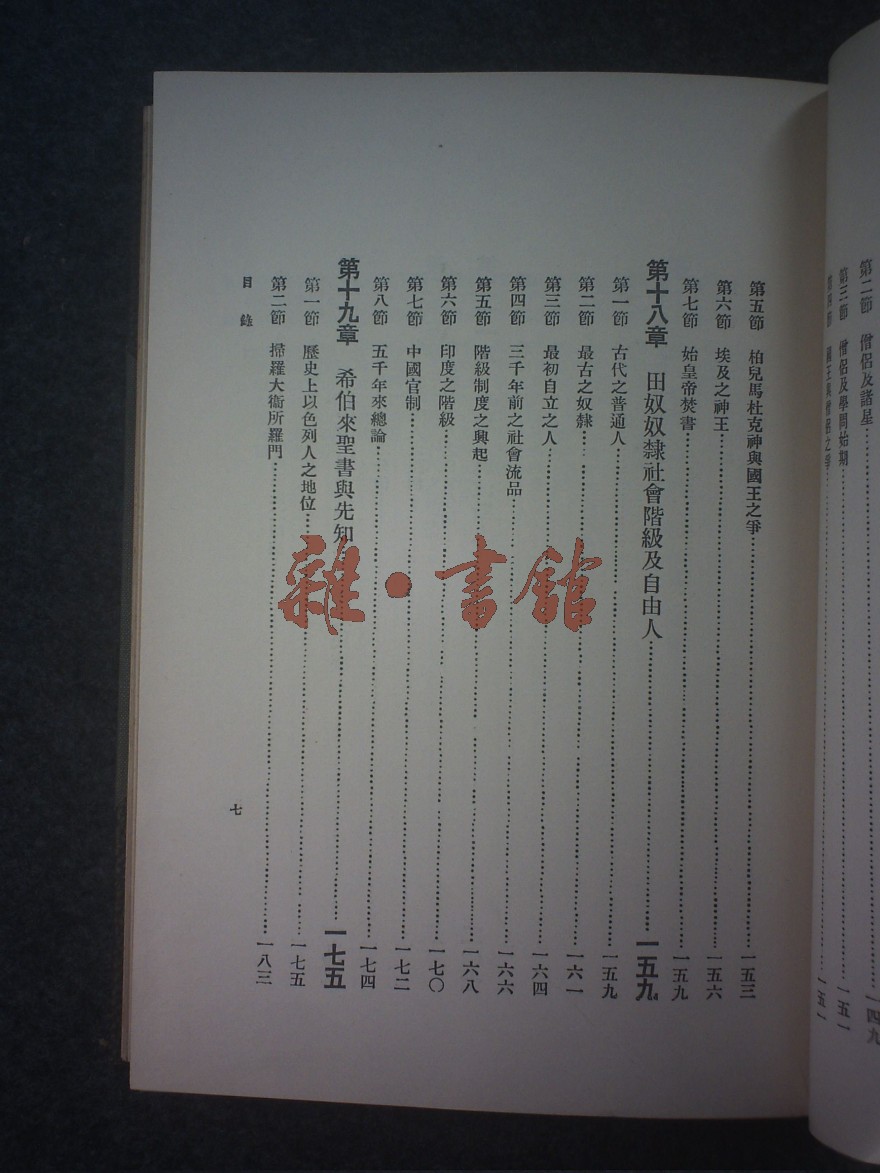 第二節　僧侶及諸星……一四九
第三節　僧侶及學問始期……一五一
第四節　國王與僧侶之爭……一五一
第五節　柏兒馬杜克神與國王之爭……一五三
第六節　埃及之神王……一五六
第七節　始皇帝焚書……一五九
第十八章　田奴奴隸社會階級及自由人……一五九
第一節　古代之普通人……一五九
第二節　最古之奴隸……一六一
第三節　最初自立之人……一六四
第四節　三千年前之社會流品……一六六
第五節　階級制度之興起……一六八
第六節　印度之階級……一七〇
第七節　中國官制……一七二
第八節　五千年來總論……一七四
第十九章　希伯來聖書與先知……一七五
第一節　歷史上以色列人之地位……一七五
第二節　掃羅大衞所羅門……一八三
目錄
七
雜·書館